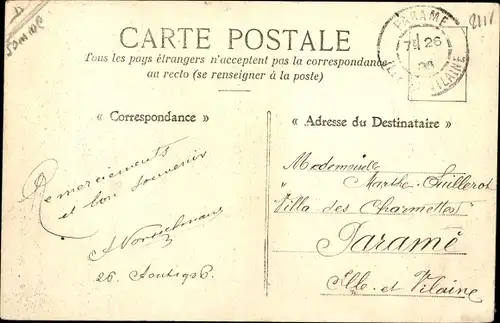 CARTE POSTALE
Tous les pays étrangers n'acceptent pas la correspondance
au recto (se renseigner à la poste)
PARAMÉ
26
ILLE ET VILAINE
« Correspondance »
Remerciements
et bon souvenir
26. Août 1906.
« Adresse du Destinataire »
Mademoiselle
Marthe Guillerot
Villa des Charmettes
Paramé
Ille et Vilaine